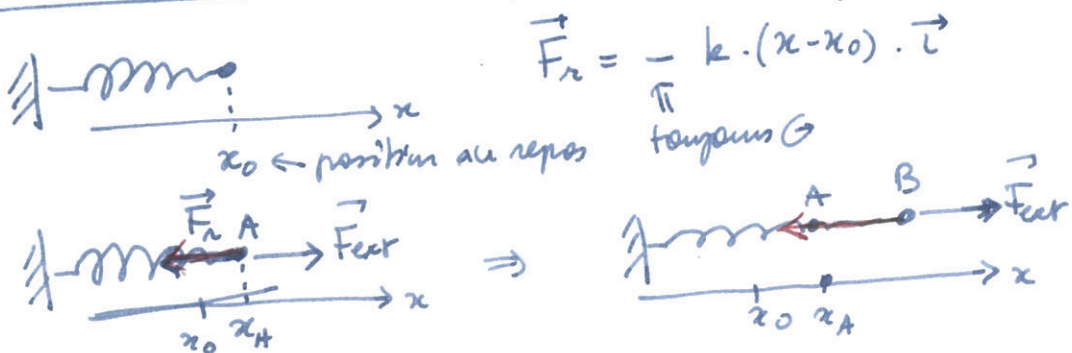 F⃗r = - k·(x-x0)·i⃗
toujours ⊖
x
x0 ← position au repos
F⃗r A F⃗ext
x
x0 xA
⇒
A B F⃗ext
x
x0 xA